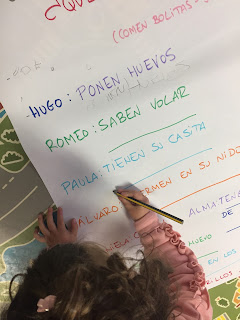 ¿QUÉ
(COMEN BOLITAS
HUGO: PONEN HUEVOS
ROMEO: SABEN VOLAR
PAULA: TIENEN SU CASITA
ÁLVARO: DUERMEN EN SU NIDO
ALMA: TENE
DE
HUEVO
EN LOS